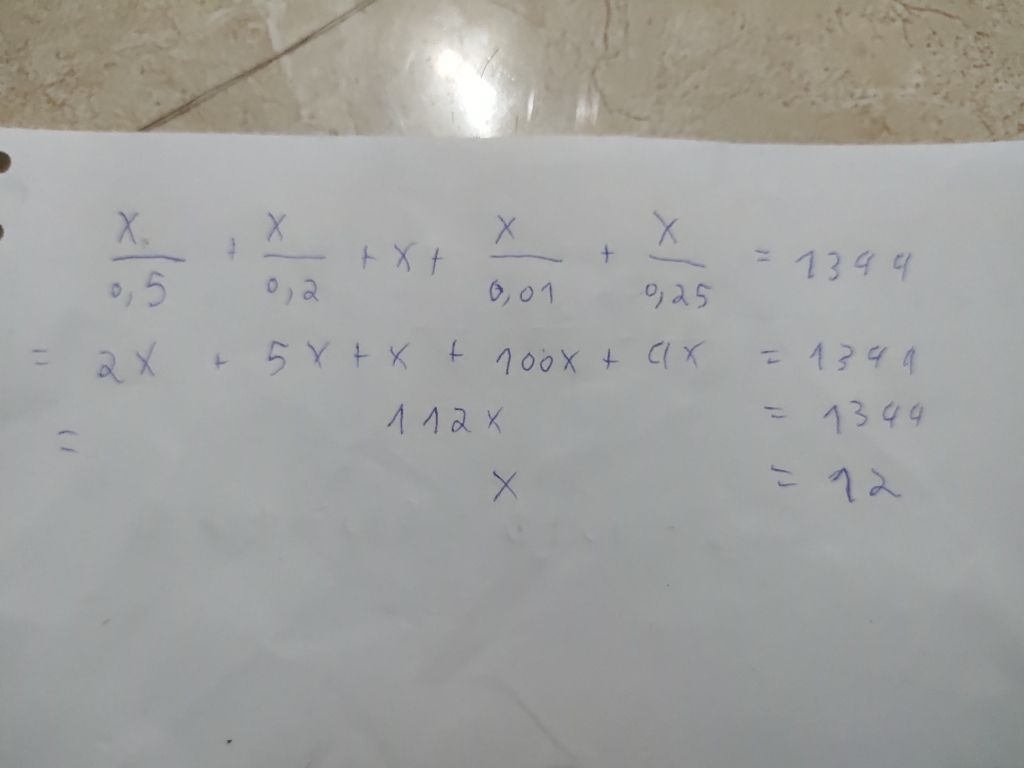 x/0,5 + x/0,2 + x + x/0,01 + x/0,25 = 1344
= 2x + 5x + x + 100x + 4x = 1344
= 112x = 1344
x = 12